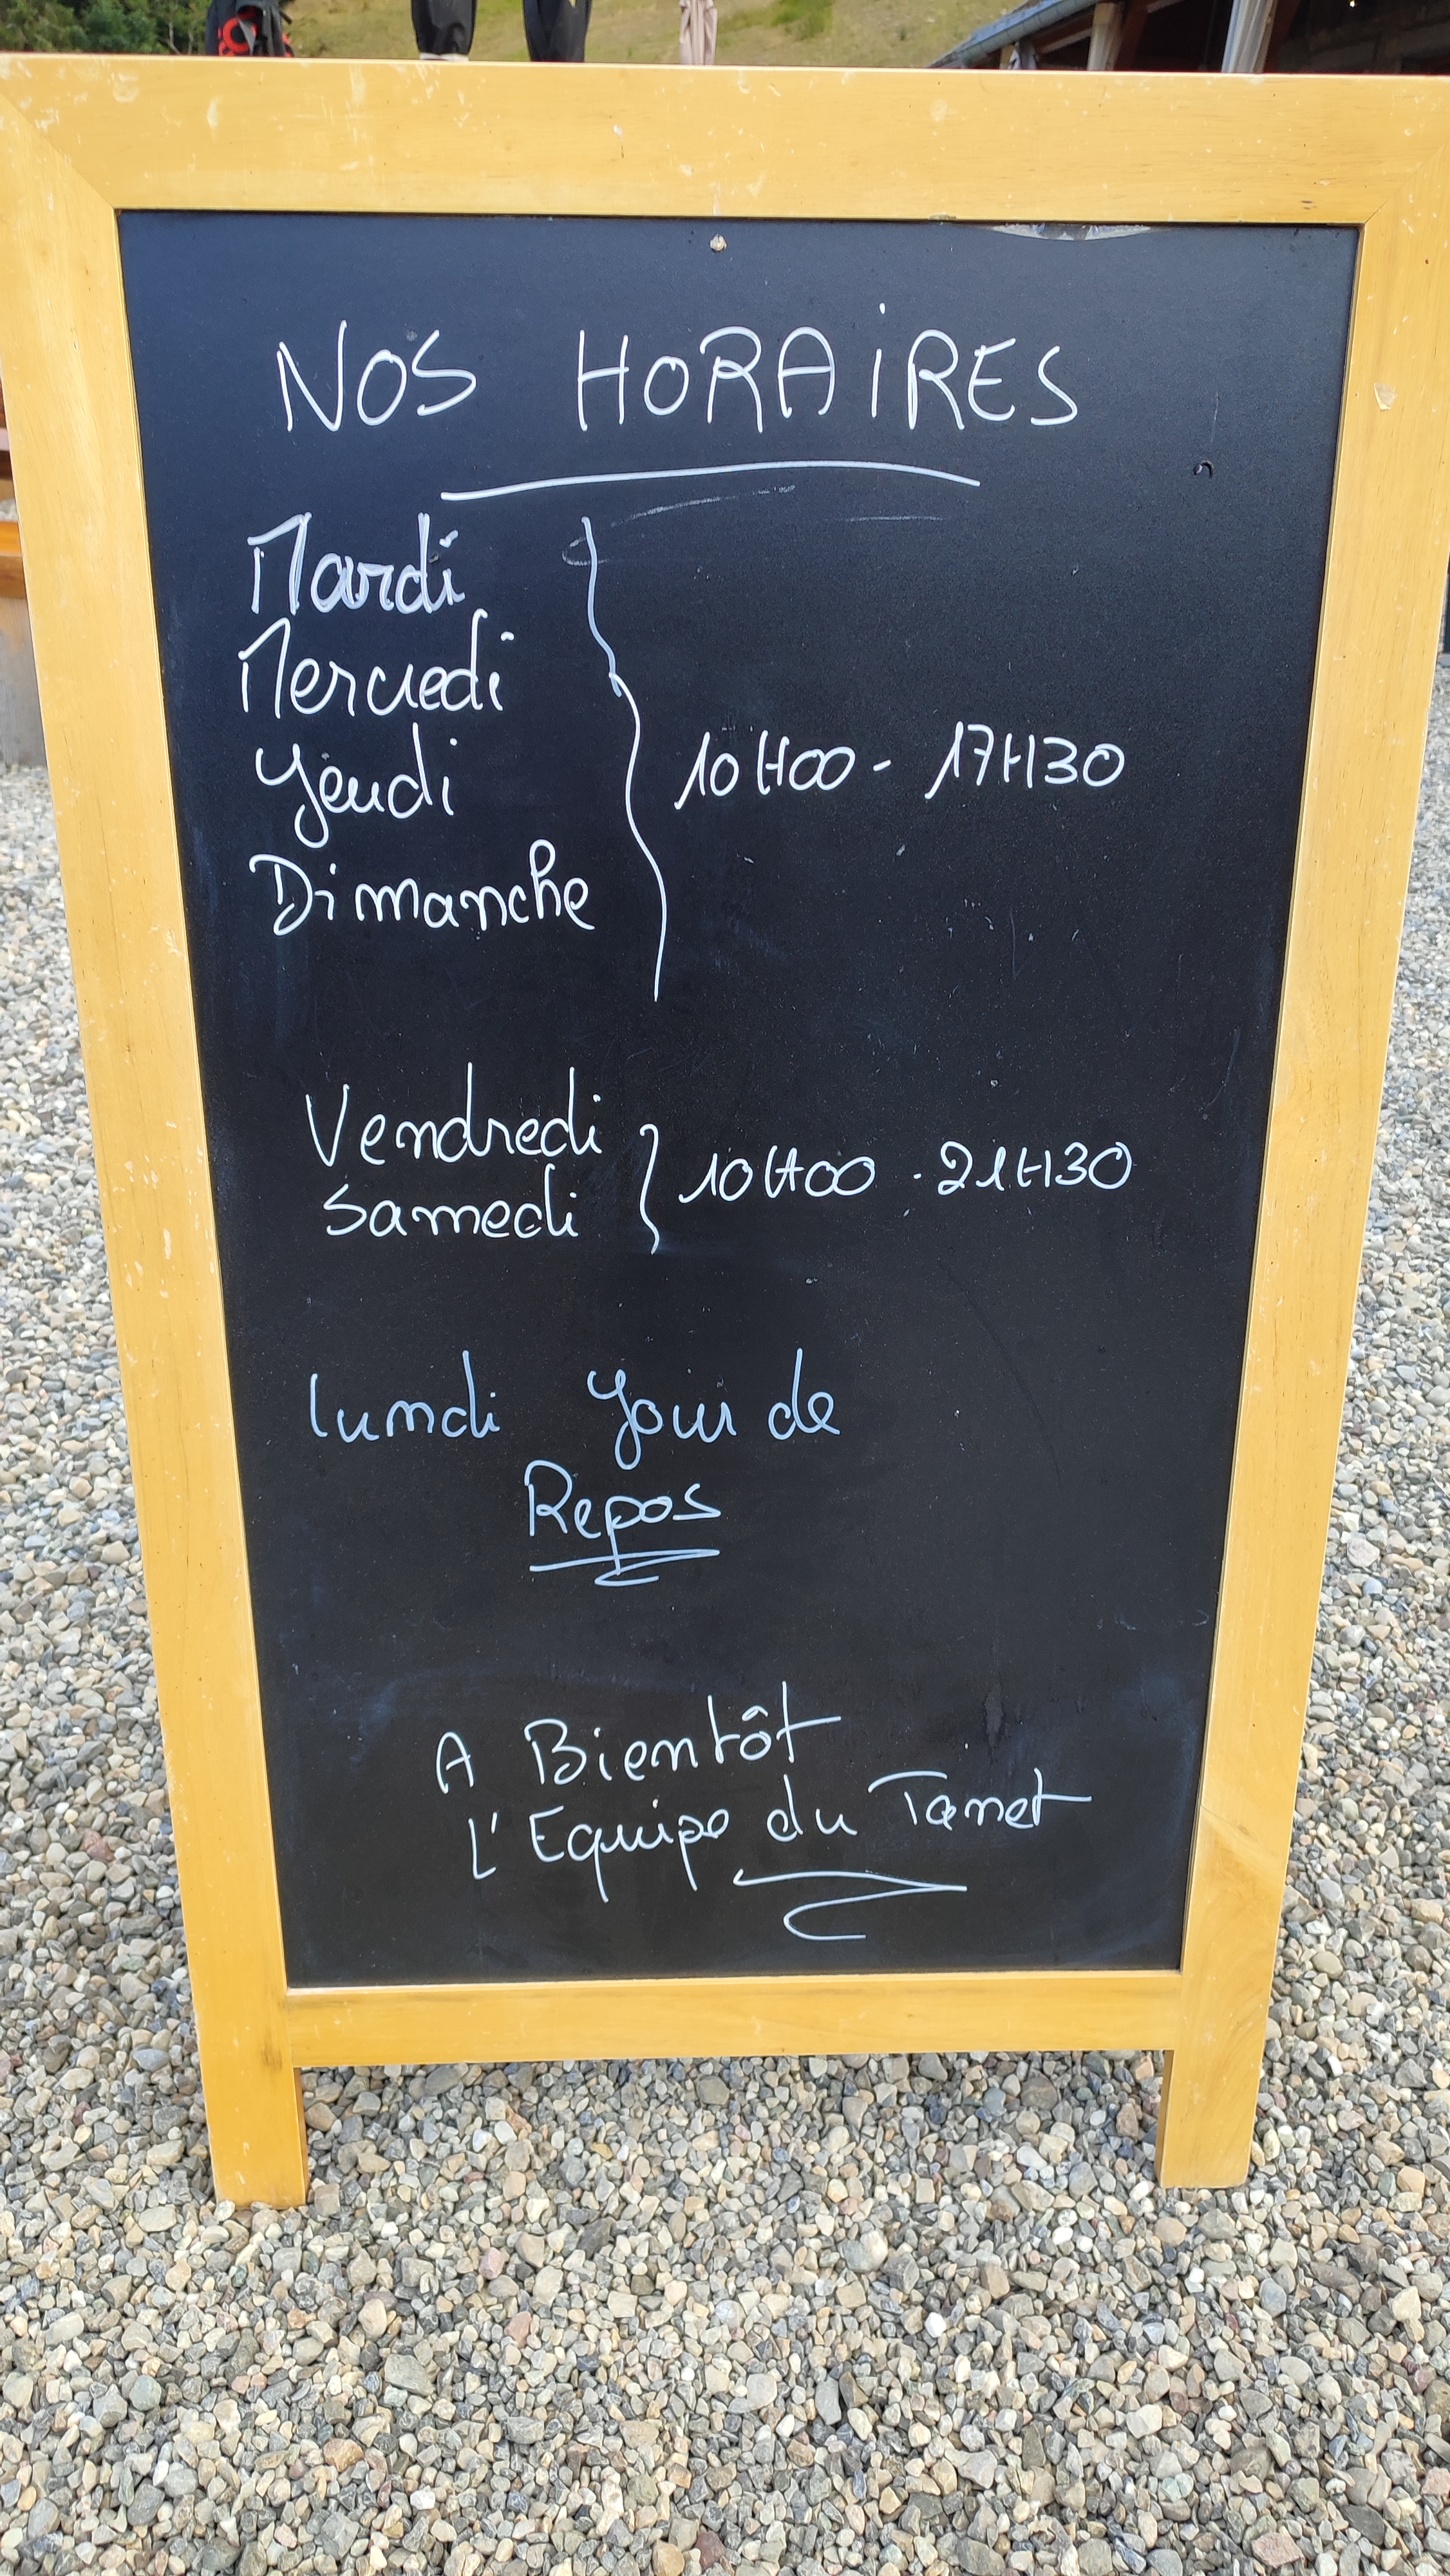 NOS HORAiRES
Mardi
Mercredi
Jeudi
Dimanche
10H00 - 17H30
Vendredi
Samedi
10H00 - 21H30
lundi Jour de
Repos
A Bientôt
L'Equipe du Tanet